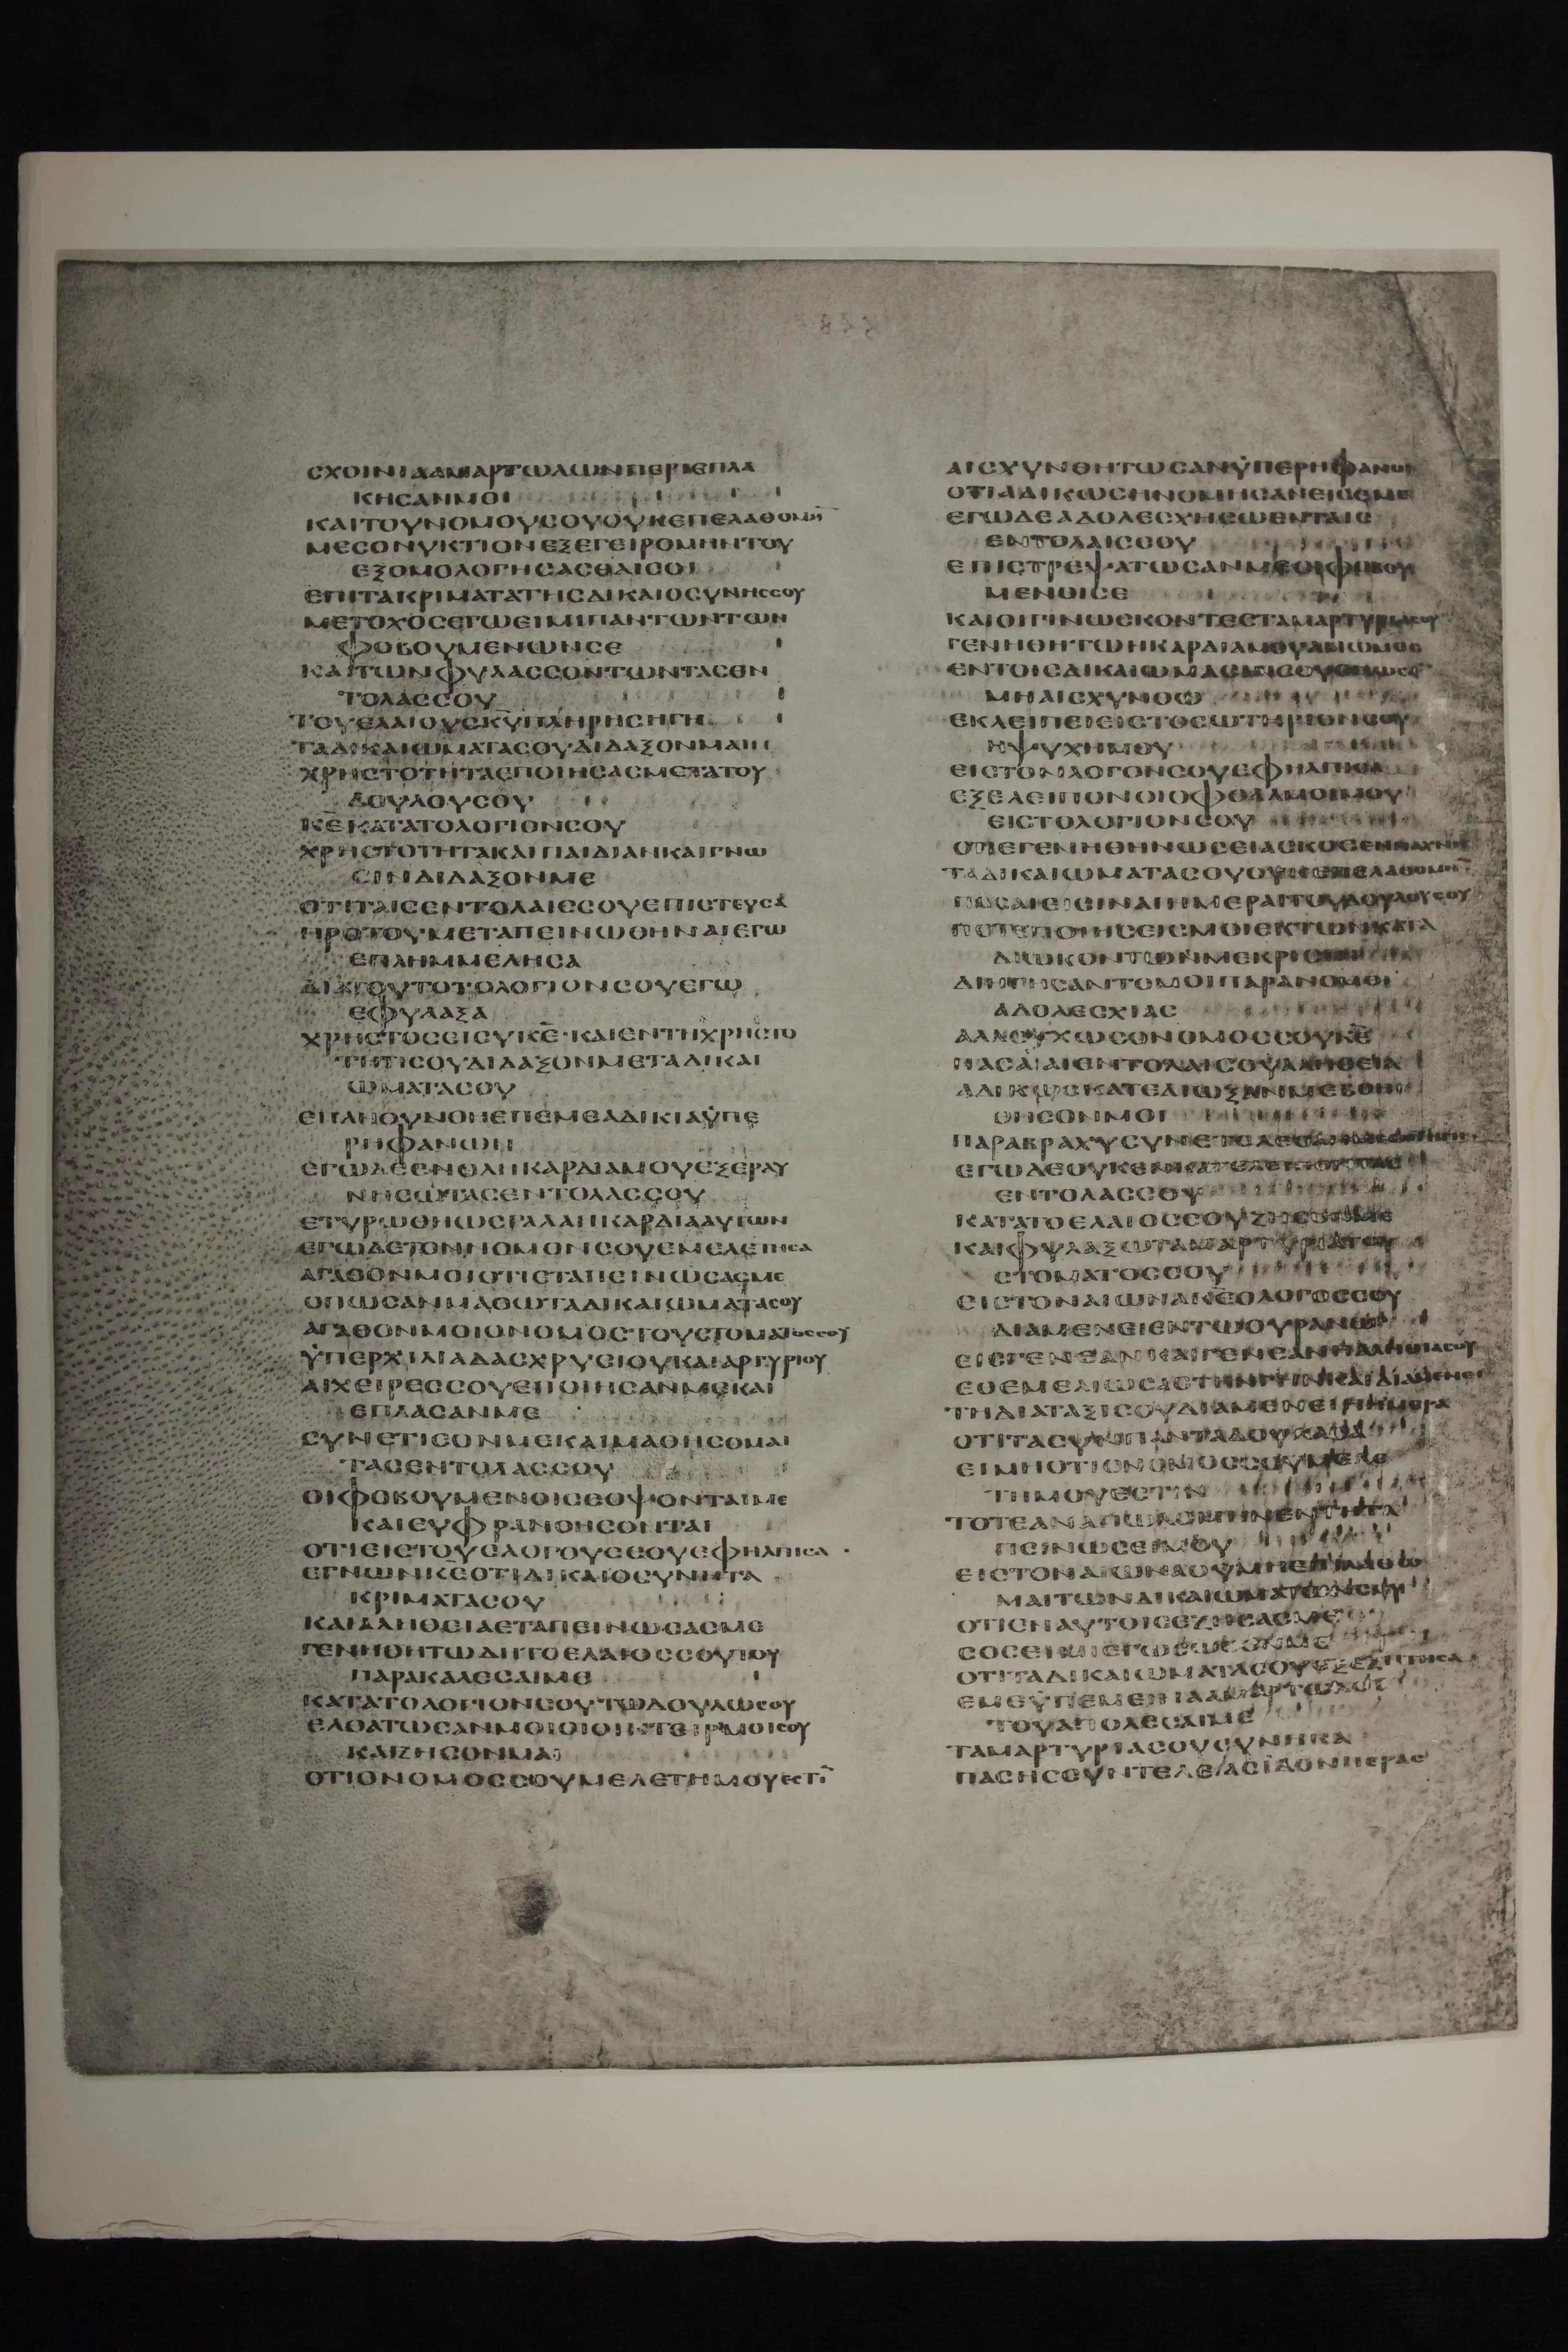 ϹΧΟΙΝΙΑΑΜΑΡΤΩΛΩΝΠΕΡΙΕΠΛΑ
ΚΗϹΑΝΜΟΙ
ΚΑΙΤΟΥΝΟΜΟΥϹΟΥΟΥΚΕΠΕΛΑΘΟΜΗ̅
ΜΕϹΟΝΥΚΤΙΟΝΕΞΕΓΕΙΡΟΜΗΝΤΟΥ
ΕΞΟΜΟΛΟΓΗϹΑϹΘΑΙϹΟΙ
ΕΠΙΤΑΚΡΙΜΑΤΑΤΗϹΔΙΚΑΙΟϹΥΝΗϹϹΟΥ
ΜΕΤΟΧΟϹΕΓΩΕΙΜΙΠΑΝΤΩΝΤΩΝ
ΦΟΒΟΥΜΕΝΩΝϹΕ
ΚΑΙΤΩΝΦΥΛΑϹϹΟΝΤΩΝΤΑϹΕΝ
ΤΟΛΑϹϹΟΥ
ΤΟΥΕΛΑΙΟΥϹΚΥΠΛΗΡΗϹΗΓΗ
ΤΑΔΙΚΑΙΩΜΑΤΑϹΟΥΔΙΔΑΞΟΝΜΑΙ
ΧΡΗϹΤΟΤΗΤΑΕΠΟΙΗϹΑϹΜΕΤΑΤΟΥ
ΔΟΥΛΟΥϹΟΥ
Κ̅Ε̅ΚΑΤΑΤΟΛΟΓΙΟΝϹΟΥ
ΧΡΗϹΤΟΤΗΤΑΚΑΙΠΑΙΔΙΑΝΚΑΙΓΝΩ
ϹΙΝΔΙΔΑΞΟΝΜΕ
ΟΤΙΤΑΙϹΕΝΤΟΛΑΙϹϹΟΥΕΠΙϹΤΕΥϹΑ
ΠΡΟΤΟΥΜΕΤΑΠΕΙΝΩΘΗΝΑΙΕΓΩ
ΕΠΛΗΜΜΕΛΗϹΑ
ΔΙΑΤΟΥΤΟΤΟΛΟΓΙΟΝϹΟΥΕΓΩ
ΕΦΥΛΑΞΑ
ΧΡΗϹΤΟϹΕΙϹΥΚ̅Ε̅·ΚΑΙΕΝΤΗΧΡΗϹΤΟ
ΤΗΤΙϹΟΥΔΙΔΑΞΟΝΜΕΤΑΔΙΚΑΙ
ΩΜΑΤΑϹΟΥ
ΕΠΛΗΘΥΝΘΗΕΠΕΜΕΑΔΙΚΙΑΫΠΕ
ΡΗΦΑΝΩΝ
ΕΓΩΔΕΕΝΟΛΗΚΑΡΔΙΑΜΟΥΕΞΕΡΑΥ
ΝΗϹΩΤΑϹΕΝΤΟΛΑϹϹΟΥ
ΕΤΥΡΩΘΗΩϹΓΑΛΑΗΚΑΡΔΙΑΑΥΤΩΝ
ΕΓΩΔΕΤΟΝΝΟΜΟΝϹΟΥΕΜΕΛΕΤΗϹΑ
ΑΓΑΘΟΝΜΟΙΟΤΙΕΤΑΠΕΙΝΩϹΑϹΜΕ
ΟΠΩϹΑΝΜΑΘΩΤΑΔΙΚΑΙΩΜΑΤΑϹΟΥ
ΑΓΑΘΟΝΜΟΙΟΝΟΜΟϹΤΟΥϹΤΟΜΑΤΟϹϹΟΥ
ΫΠΕΡΧΙΛΙΑΔΑϹΧΡΥϹΙΟΥΚΑΙΑΡΓΥΡΙΟΥ
ΑΙΧΕΙΡΕϹϹΟΥΕΠΟΙΗϹΑΝΜΕΚΑΙ
ΕΠΛΑϹΑΝΜΕ
ϹΥΝΕΤΙϹΟΝΜΕΚΑΙΜΑΘΗϹΟΜΑΙ
ΤΑϹΕΝΤΟΛΑϹϹΟΥ
ΟΙΦΟΒΟΥΜΕΝΟΙϹΕΟΨΟΝΤΑΙΜΕ
ΚΑΙΕΥΦΡΑΝΘΗϹΟΝΤΑΙ
ΟΤΙΕΙϹΤΟΥϹΛΟΓΟΥϹϹΟΥΕΦΗΛΠΙϹΑ
ΕΓΝΩΝΚ̅Ε̅ΟΤΙΔΙΚΑΙΟϹΥΝΗΤΑ
ΚΡΙΜΑΤΑϹΟΥ
ΚΑΙΑΛΗΘΕΙΑΕΤΑΠΕΙΝΩϹΑϹΜΕ
ΓΕΝΗΘΗΤΩΔΗΤΟΕΛΑΙΟϹϹΟΥΤΟΥ
ΠΑΡΑΚΑΛΕϹΑΙΜΕ
ΚΑΤΑΤΟΛΟΓΙΟΝϹΟΥΤΩΔΟΥΛΩϹΟΥ
ΕΛΘΑΤΩϹΑΝΜΟΙΟΙΟΙΚΤΕΙΡΜΟΙϹΟΥ
ΚΑΙΖΗϹΟΝΜΑΙ
ΟΤΙΟΝΟΜΟϹϹΟΥΜΕΛΕΤΗΜΟΥΕϹΤΙ̅
ΑΙϹΧΥΝΘΗΤΩϹΑΝΫΠΕΡΗΦΑΝΟΙ
ΟΤΙΑΔΙΚΩϹΗΝΟΜΗϹΑΝΕΙϹΕΜΕ
ΕΓΩΔΕΑΔΟΛΕϹΧΗϹΩΕΝΤΑΙϹ
ΕΝΤΟΛΑΙϹϹΟΥ
ΕΠΙϹΤΡΕΨΑΤΩϹΑΝΜΕΟΙΦΟΒΟΥ
ΜΕΝΟΙϹΕ
ΚΑΙΟΙΓΙΝΩϹΚΟΝΤΕϹΤΑΜΑΡΤΥΡΙΑϹΟΥ
ΓΕΝΗΘΗΤΩΗΚΑΡΔΙΑΜΟΥΑΜΩΜΟϹ
ΕΝΤΟΙϹΔΙΚΑΙΩΜΑϹΙΝϹΟΥ
ΜΗΑΙϹΧΥΝΘΩ
ΕΚΛΕΙΠΕΙΕΙϹΤΟϹΩΤΗΡΙΟΝϹΟΥ
ΗΨΥΧΗΜΟΥ
ΕΙϹΤΟΝΛΟΓΟΝϹΟΥΕΦΗΛΠΙϹΑ
ΕΞΕΛΕΙΠΟΝΟΙΟΦΘΑΛΜΟΙΜΟΥ
ΕΙϹΤΟΛΟΓΙΟΝϹΟΥ
ΟΤΙΕΓΕΝΗΘΗΝΩϹΕΙΑϹΚΟϹΕΝΠΑΧΝΗ
ΤΑΔΙΚΑΙΩΜΑΤΑϹΟΥΟΥΚΕΠΕΛΑΘΟΜΗ̅
ΠΟϹΑΙΕΙϹΙΝΑΙΗΜΕΡΑΙΤΟΥΔΟΥΛΟΥϹΟΥ
ΠΟΤΕΠΟΙΗϹΕΙϹΜΟΙΕΚΤΩΝΚΑΤΑ
ΔΙΩΚΟΝΤΩΝΜΕΚΡΙϹΙΝ
ΔΙΗΓΗϹΑΝΤΟΜΟΙΠΑΡΑΝΟΜΟΙ
ΑΔΟΛΕϹΧΙΑϹ
ΑΛΛΟΥΧΩϹΟΝΟΜΟϹϹΟΥΚ̅Ε̅
ΠΑϹΑΙΑΙΕΝΤΟΛΑΙϹΟΥΑΛΗΘΕΙΑ
ΑΔΙΚΩϹΚΑΤΕΔΙΩΞΑΝΜΕΒΟΗ
ΘΗϹΟΝΜΟΙ
ΠΑΡΑΒΡΑΧΥϹΥΝΕΤΕΛΕϹΑΝ
ΕΓΩΔΕΟΥΚΕΝΚΑΤΕΛΕΙΠΟΝΤΑϹ
ΕΝΤΟΛΑϹϹΟΥ
ΚΑΤΑΤΟΕΛΑΙΟϹϹΟΥΖΗϹΟΝΜΕ
ΚΑΙΦΥΛΑΞΩΤΑΜΑΡΤΥΡΙΑΤΟΥ
ϹΤΟΜΑΤΟϹϹΟΥ
ΕΙϹΤΟΝΑΙΩΝΑΚ̅Ε̅ΟΛΟΓΟϹϹΟΥ
ΔΙΑΜΕΝΕΙΕΝΤΩΟΥΡΑΝΩ
ΕΙϹΓΕΝΕΑΝΚΑΙΓΕΝΕΑΝΗΑΛΗΘΙΑϹΟΥ
ΕΘΕΜΕΛΙΩϹΑϹΤΗΝΓΗΝΚΑΙΔΙΑΜΕΝΕΙ
ΤΗΔΙΑΤΑΞΙϹΟΥΔΙΑΜΕΝΕΙΗΜΕΡΑ
ΟΤΙΤΑϹΥΜΠΑΝΤΑΔΟΥΛΑϹΑ
ΕΙΜΗΟΤΙΟΝΟΜΟϹϹΟΥΜΕΛΕ
ΤΗΜΟΥΕϹΤΙΝ
ΤΟΤΕΑΝΑΠΩΛΟΜΗΝΕΝΤΗΤΑ
ΠΕΙΝΩϹΕΙΜΟΥ
ΕΙϹΤΟΝΑΙΩΝΑΟΥΜΗΕΠΙΛΑΘΩ
ΜΑΙΤΩΝΔΙΚΑΙΩΜΑΤΩΝϹΟΥ
ΟΤΙΕΝΑΥΤΟΙϹΕΖΗϹΑϹΜΕ
ϹΟϹΕΙΜΙΕΓΩϹΩϹΟΝΜΕ
ΟΤΙΤΑΔΙΚΑΙΩΜΑΤΑϹΟΥΕΞΕΖΗΤΗϹΑ
ΕΜΕΫΠΕΜΕΙΝΑΑΜΑΡΤΩΛΟΙ
ΤΟΥΑΠΟΛΕϹΑΙΜΕ
ΤΑΜΑΡΤΥΡΙΑϹΟΥϹΥΝΗΚΑ
ΠΑϹΗϹϹΥΝΤΕΛΕΙΑϹΙΔΟΝΠΕΡΑϹ